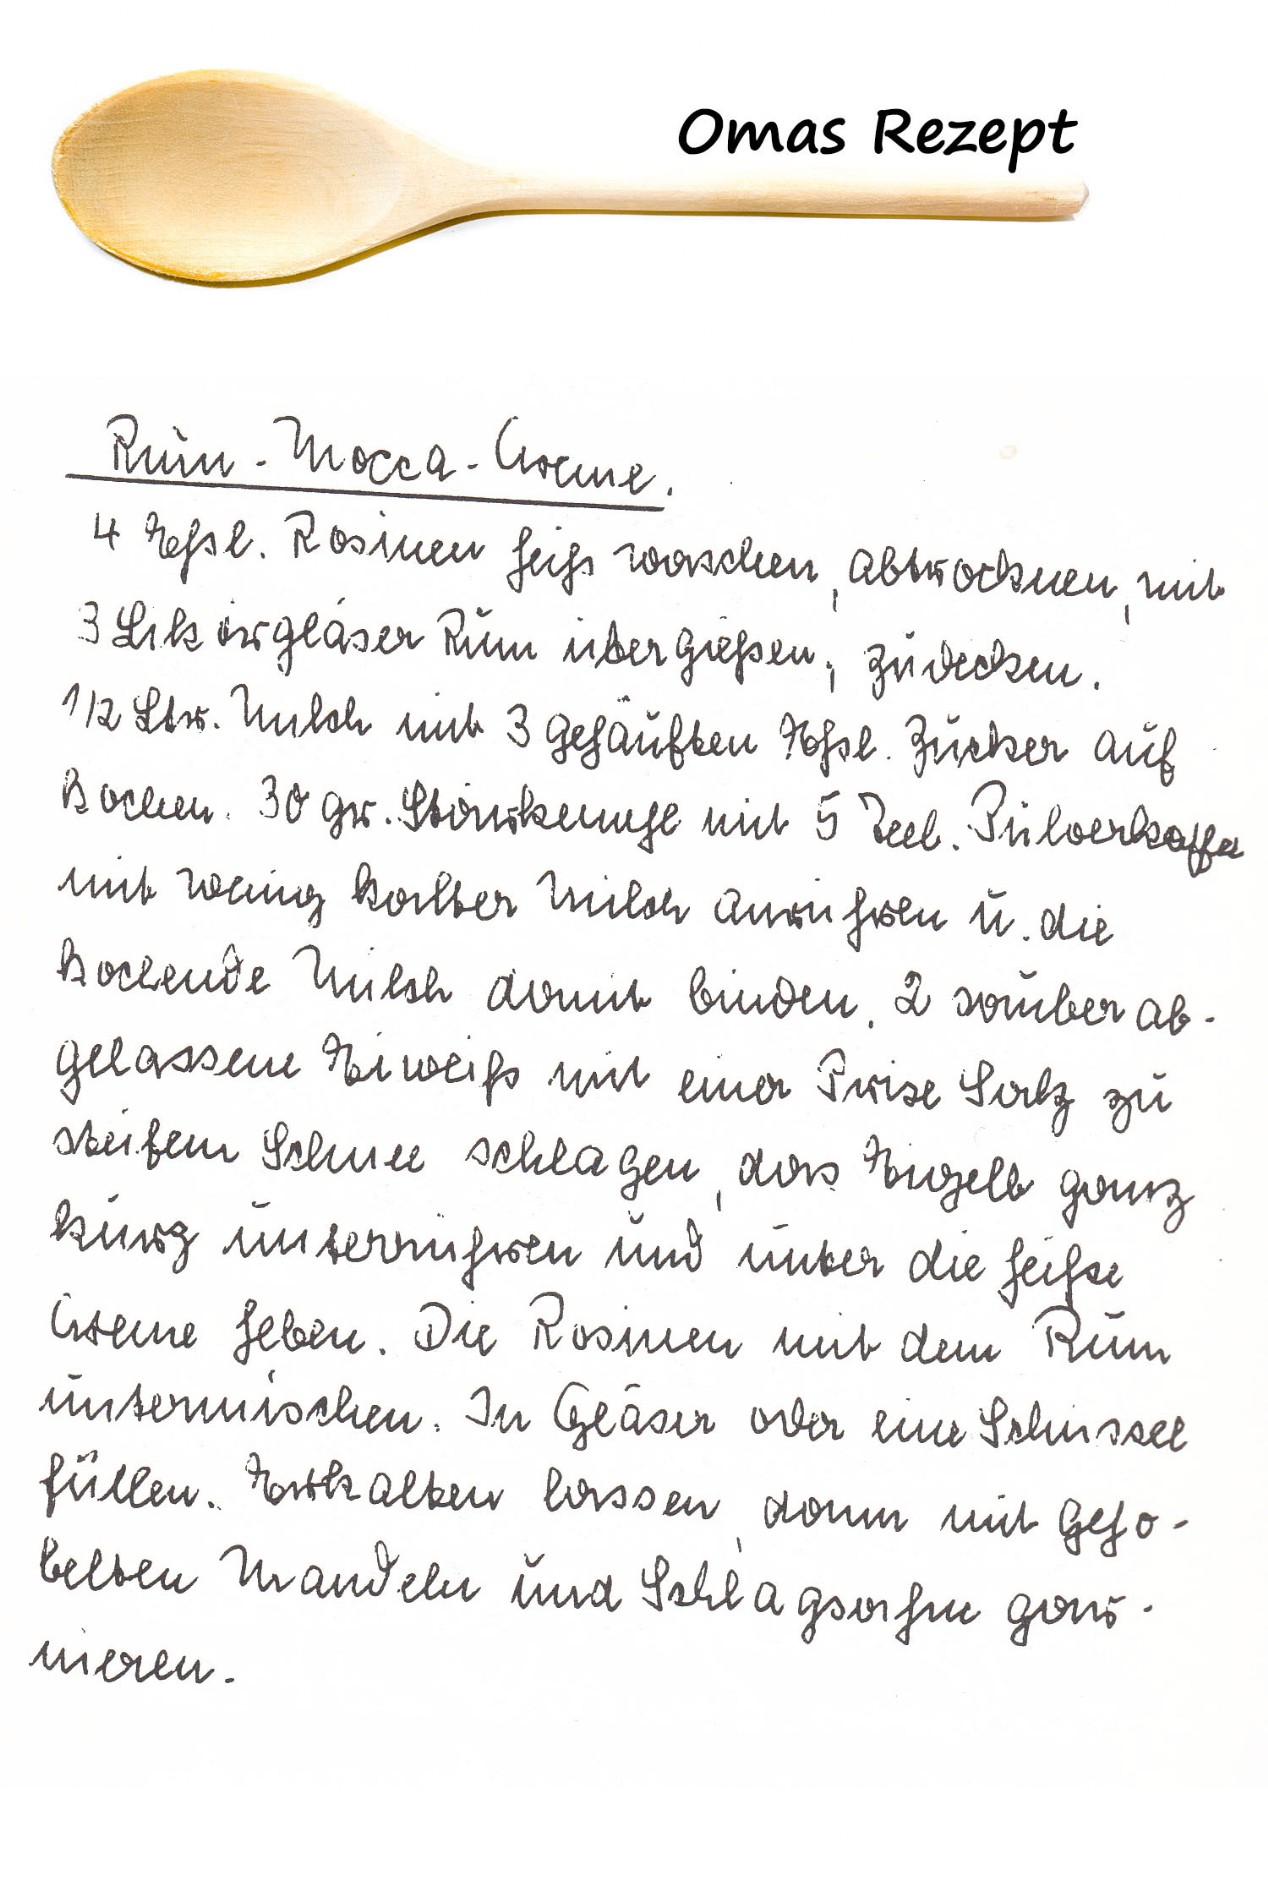 Omas Rezept
Rum-Mocca-Creme.
4 Eßl. Rosinen heiß waschen, abtrocknen, mit
3 Likörgläser Rum übergießen, zudecken.
1/2 Ltr. Milch mit 3 gehäuften Eßl. Zucker auf
kochen. 30 gr. Stärkemehl mit 5 Teel. Pulverkaffee
mit wenig kalter Milch anrühren u. die
kochende Milch damit binden. 2 sauber ab-
gelassene Eiweiß mit einer Prise Salz zu
steifem Schnee schlagen, das Eigelb ganz
kurz unterrühren und unter die heiße
Creme heben. Die Rosinen mit dem Rum
untermischen. In Gläser oder eine Schüssel
füllen. Erkalten lassen, dann mit geho-
belten Mandeln und Schlagsahne gar-
nieren.